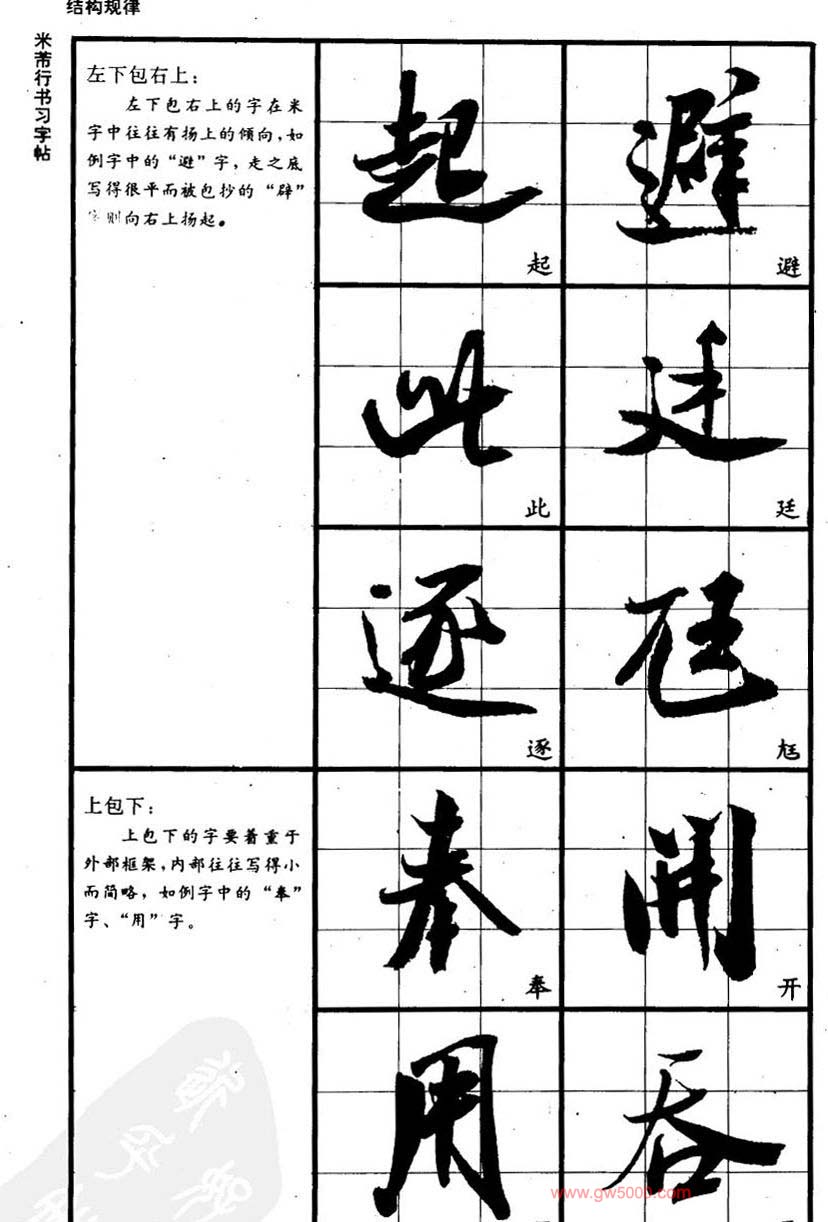 结构规律
米芾行书习字帖
左下包右上：
左下包右上的字在米
字中往往有扬上的倾向，如
例字中的“避”字，走之底
写得很平而被包抄的“辟”
字则向右上扬起。
起 避
起 避
此 廷
此 廷
逐 尪
逐 尪
上包下：
上包下的字要着重于
外部框架，内部往往写得小
而简略，如例字中的“奉”
字、“用”字。
奉 開
奉 开
用 吞
www.gw5000.com